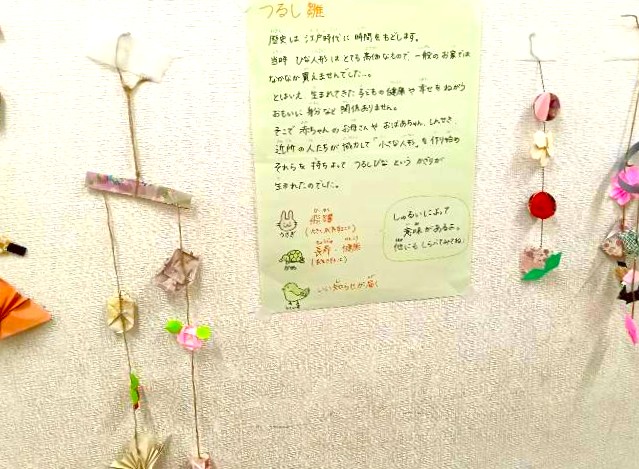 つるし雛
歴史は江戸時代に時間をもどします。
当時 ひな人形は とても 高価なもので、一般の お家では
なかなか買えませんでした…。
とはいえ 生まれてきた 子どもの 健康や 幸せを ねがう
おもいに 身分など 関係ありません。
そこで 赤ちゃんの お母さんや おばあちゃん、しんせき、
近所の人たちが 協力して "小さな人形" を 作り始め
それらを 持ちよって つるしびな という かざりが
生まれたのでした。
うさぎ
飛躍
かめ
長寿・健康
いい知らせが届く
しゅるいによって
意味があるよ。
他にも しらべてみてね!